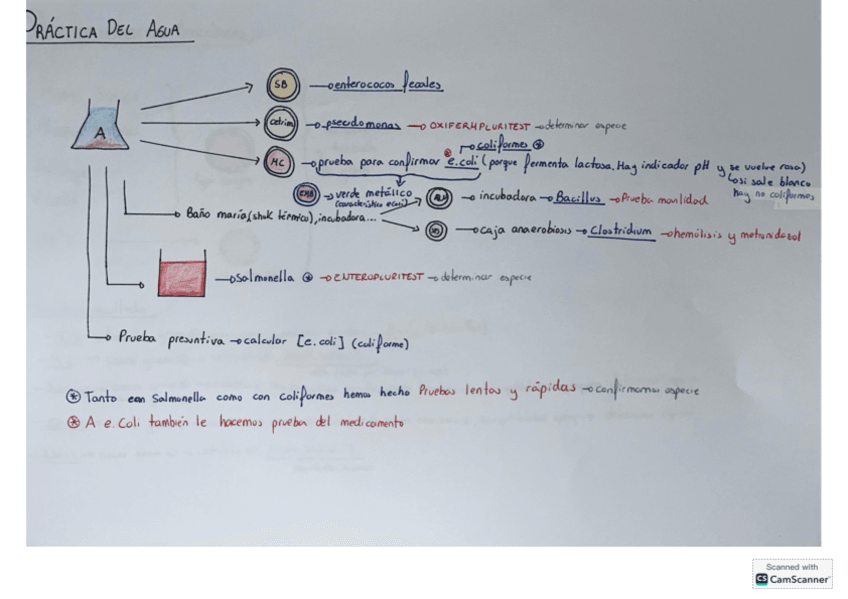 PRÁCTICA DEL AGUA
A
SB → enterococos fecales
cetrim → pseudomonas → OXIFERMPLURITEST → determinar especie
coliformes
MC → prueba para confirmar e.coli (porque fermenta lactosa. Hay indicador pH y se vuelve rosa)
Cosi sale blanco
hay no coliformes
EMB → verde metálico
(característico e.coli)
→ incubadora → Bacillus → Prueba movilidad
Baño maría (shok térmico), incubadora...
→ caja anaerobiosis → Clostridium → hemólisis y metronidazol
→ Salmonella → ENTEROPLURITEST → determinar especie
Prueba presuntiva → calcular [e.coli] (coliforme)
Tanto con Salmonella como con coliformes hemos hecho Pruebas lentas y rápidas → confirmamos especie
A e.Coli también le hacemos prueba del medicamento
Scanned with
CS CamScanner